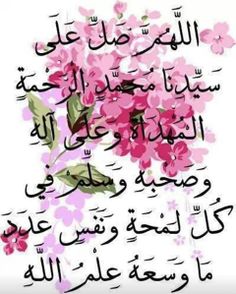 اللَّهُمَّ صَلِّ عَلَى
سَيِّدِنَا مُحَمَّدٍ الرَّحْمَةِ
الْمُهْدَاةِ وَعَلَى آلِهِ
وَصَحْبِهِ وَسَلِّمْ فِي
كُلِّ لَمْحَةٍ وَنَفَسٍ عَدَدَ
مَا وَسِعَهُ عِلْمُ اللَّهِ